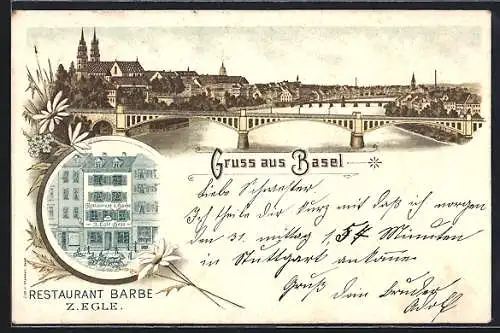 Gruss aus Basel
liebe Schwester
Ich theile dir kurz mit daß ich morgen
den 31. mittag 1,54 Minuten
in Stuttgart ankomme.
Gruß dein Bruder
Adolf
Restaurant z. Barbe
Z. Egle
RESTAURANT BARBE
Z. EGLE.